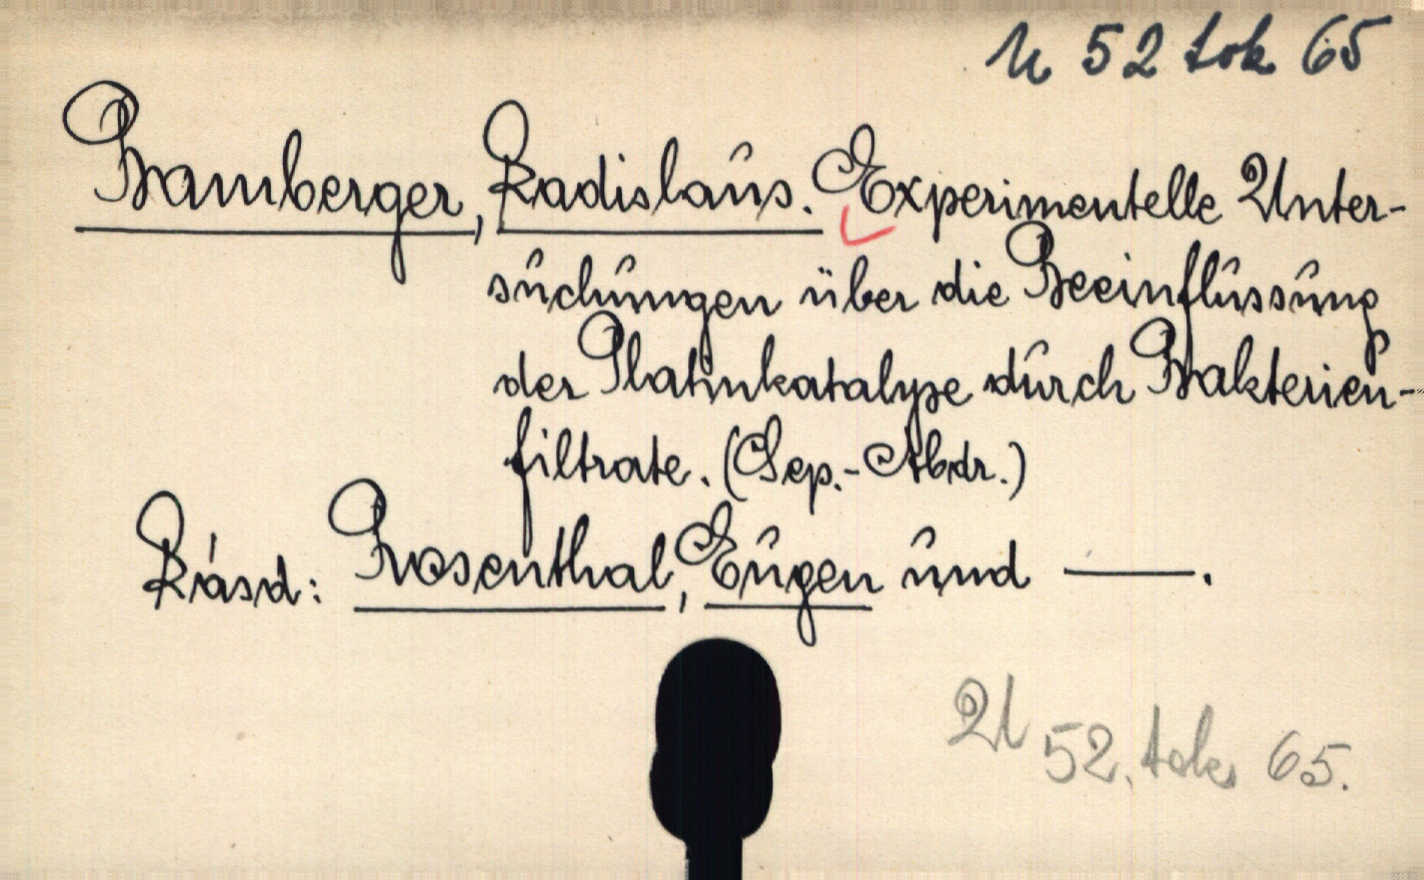 U 52 tok 65
Bamberger, Ladislaus. Experimentelle Unter-
suchungen über die Beeinflussung
der Platinkatalyse durch Bakterien-
filtrate. (Sep.-Abdr.)
Lásd: Rosenthal, Eugen und —.
U 52. tok 65.